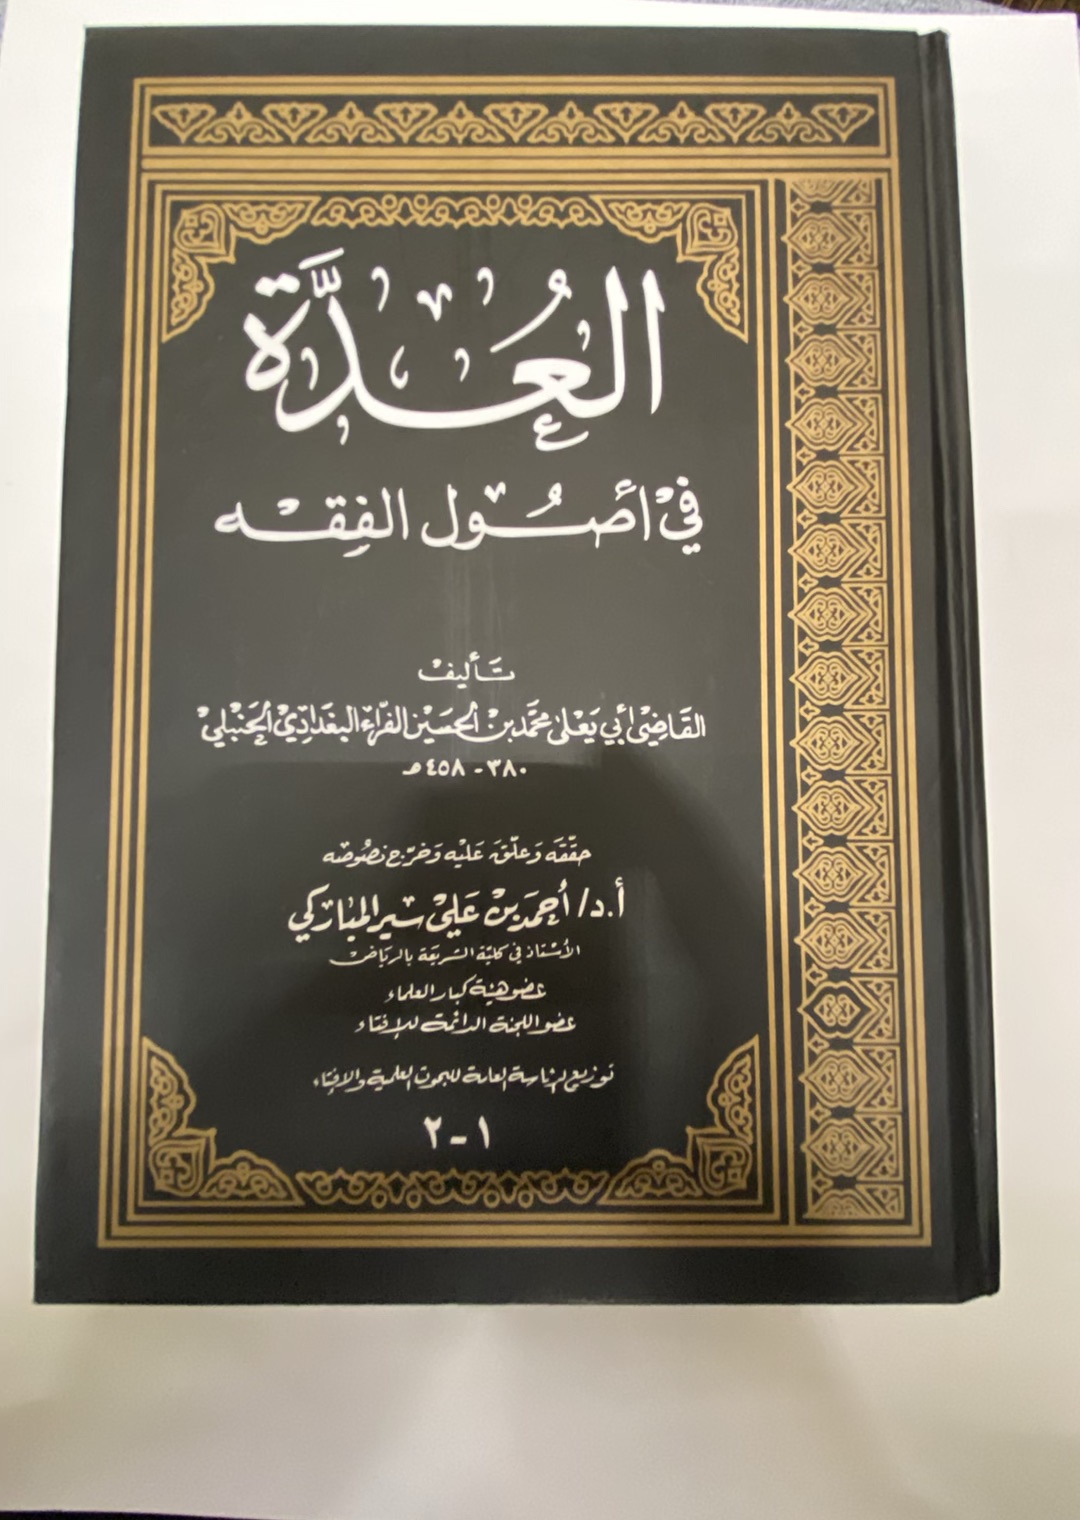 العُدَّة
في أصُول الفِقه
تأليف
القَاضِي أبي يَعلى محمَّد بن الحسَين الفرَّاء البغدَادي الحنبلي
٣٨٠ - ٤٥٨ هـ
حقّقَه وَعلّقَ عَليْه وَخرّج نصُوصَه
أ.د/ أحمَد بن عَلي سير المباركي
الأستاذ في كليّة الشريعَة بالريَاض
عضو هيئة كبار العلماء
عضو اللجنة الدائمة للإفتاء
توزيع الرئاسة العامة للبحوث العلمية والإفتاء
١-٢